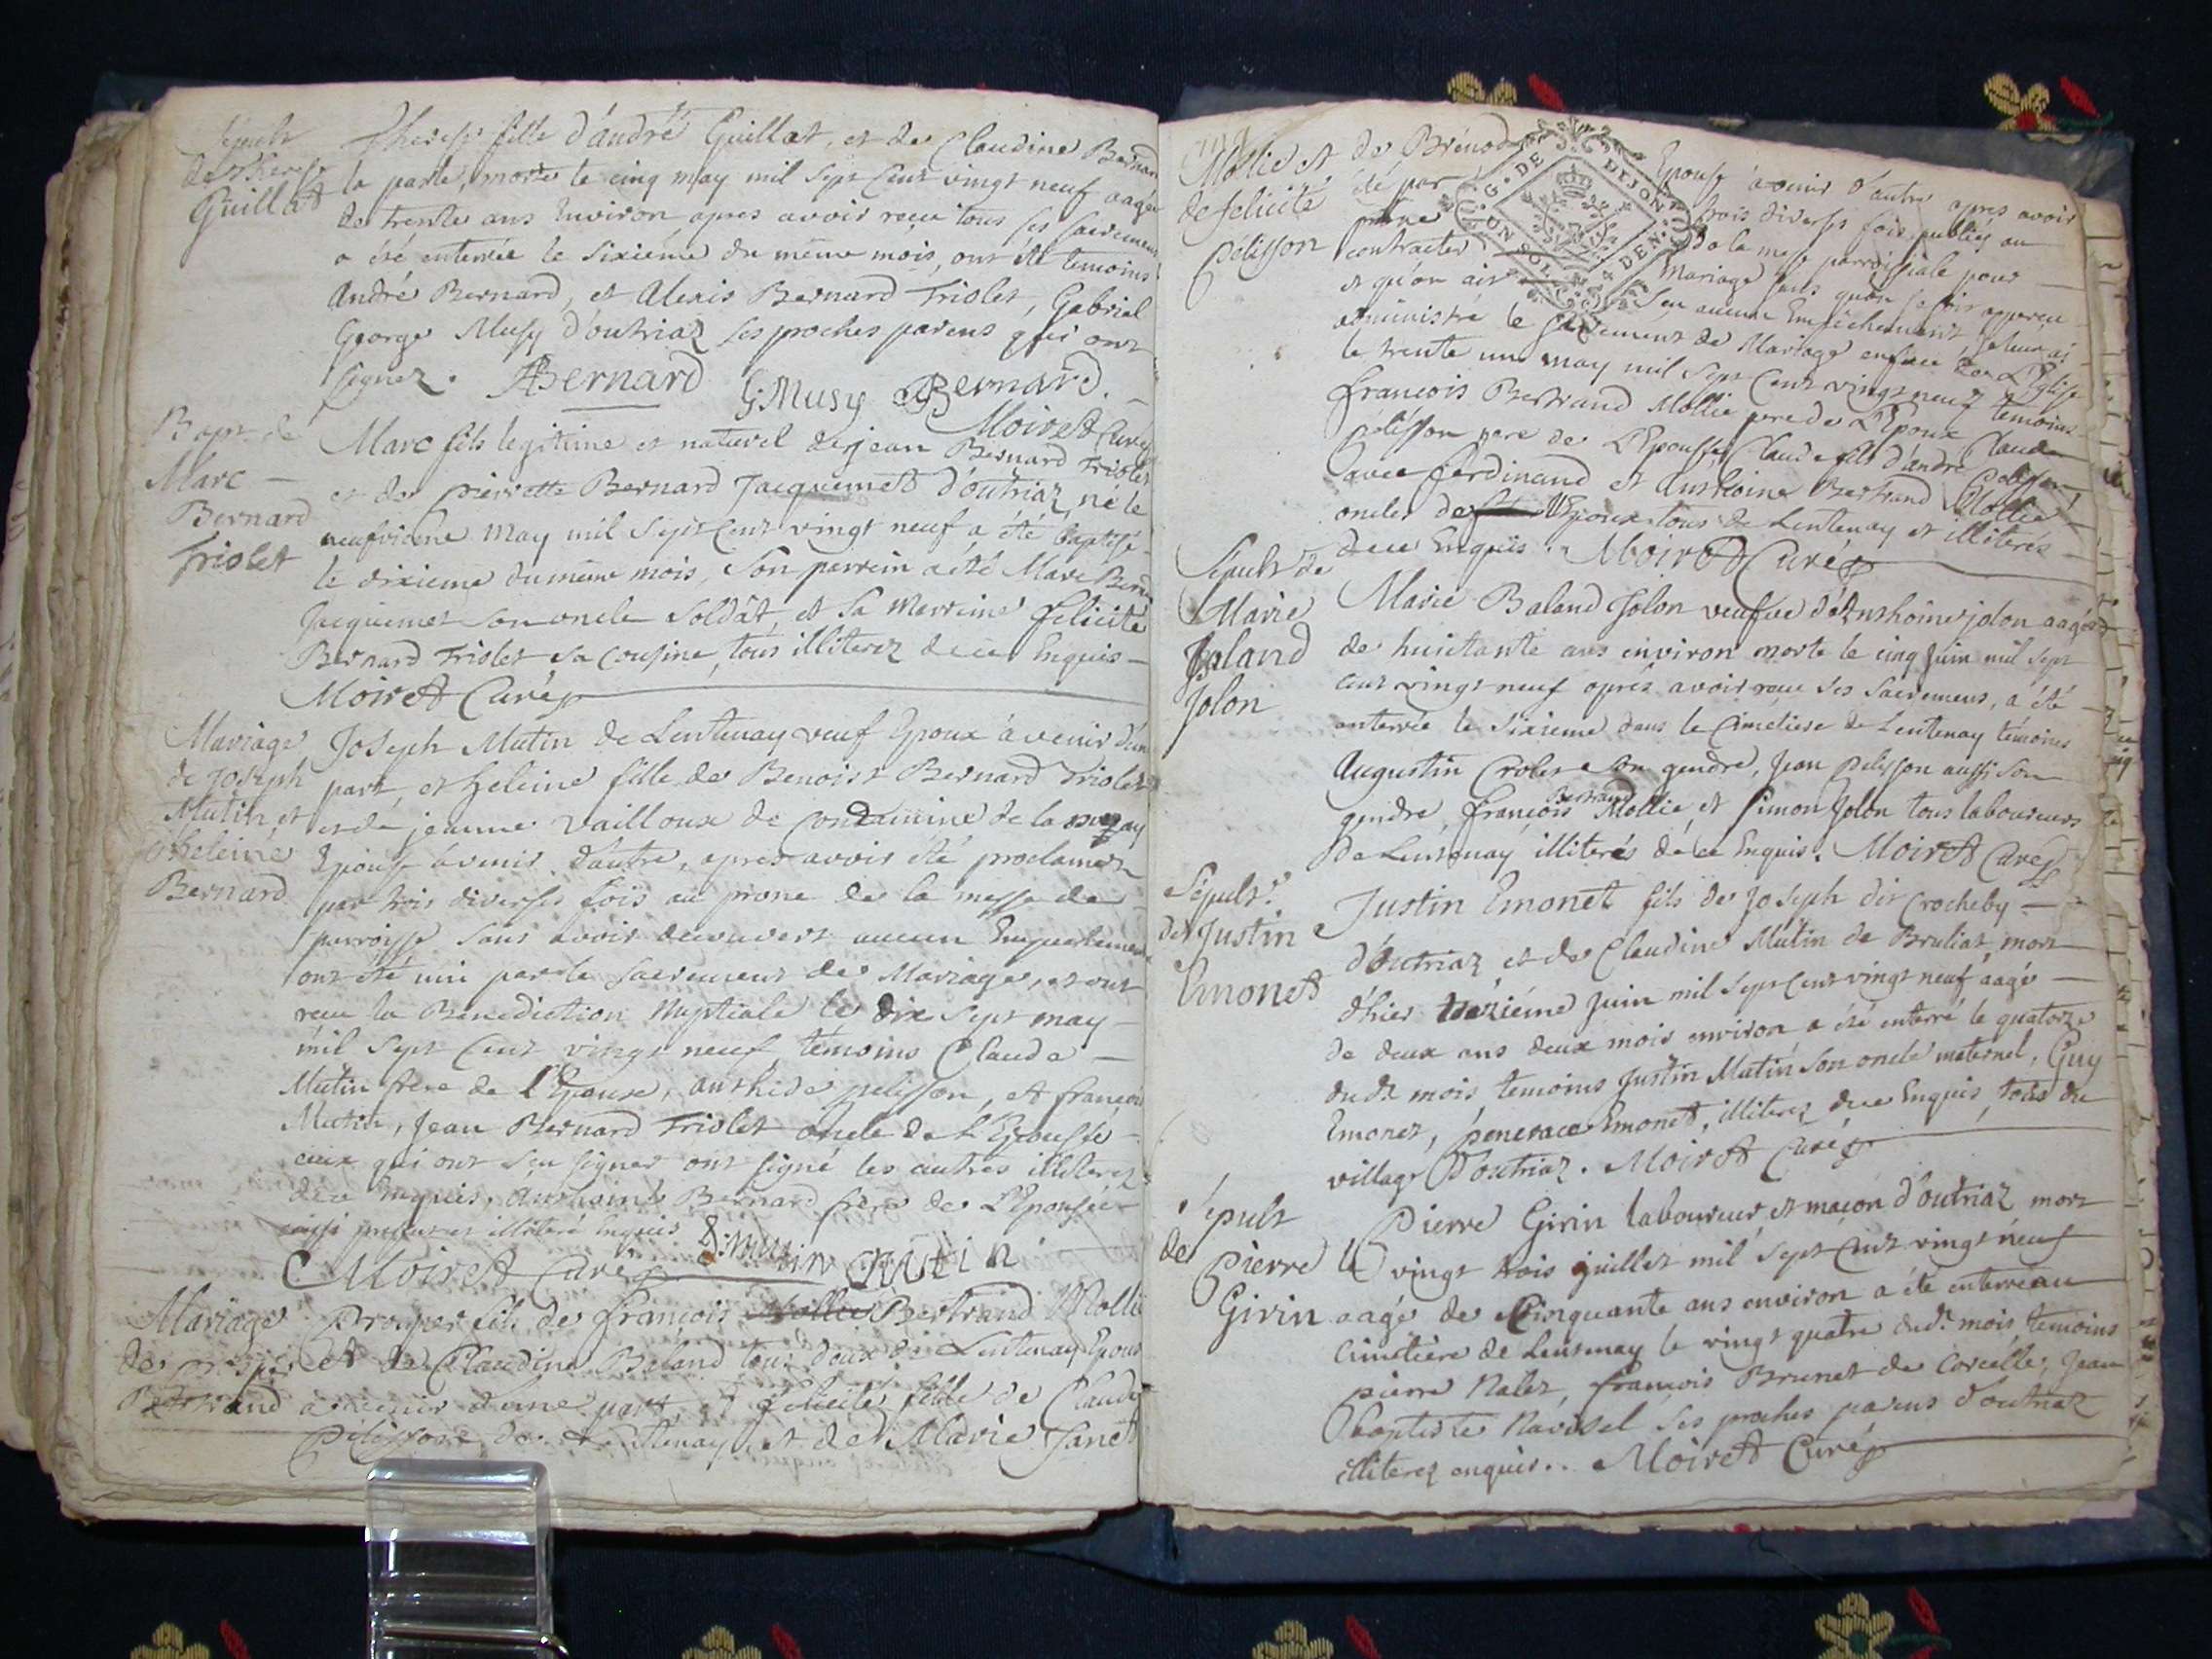 Sepult
de Therese
Guillat
Therese fille d'andré Guillat, et de Claudine Bernar
la parte, morte le cinq may mil sept cent vingt neuf aagée
de trente ans Environ, apres avoir receu tous ses sacremens
a été enterrée le sixième du même mois, ont été temoins
André Bernard, et Alexis Bernard Triolet, Gabriel
George Musy d'outriaz ses proches parens qui ont
signez. ABernard G:Musy Bernard.
Moiret Curé
Bapt. de
Marc
Bernard
Triolet
Marc fils legitime et naturel de jean Bernard Triolet
et de pierrette Bernard Jacquemet d'outriaz, né le
neufvieme May mil sept cent vingt neuf a été baptisé
le dixieme du même mois, Son parrein a été Marc Bern
Jacquemet son oncle soldât, et sa Marreine felicité
Bernard Triolet sa cousine, tous illiterez de ce Enquis
Moiret Curé
Mariage
de Joseph
Mutin et
d'heleine
Bernard
Joseph Mutin de Lentenay veuf Epoux à venir d'un
part, et heleine fille de Benoist Bernard Triolet
et de jeanne Vailloux de Condamine de la
Epouse àvenir d'autre, apres avoir été proclamez
par trois diverses fois au prone de la messe de
parroisse sans avoir decouvert aucun Empechemen
ont été uni par le sacrement de Mariage, et ont
receu la Benediction Nuptiale le dix sept may
mil sept cent vingt neuf, temoins Claude
Mutin frere de l'Epoux, pelisson, et francois
Mutin, Jean Bernard Triolet oncle de l'Epousée
ceux qui ont sçu signer ont signé les autres illiterez
de ce Enquis, Bernard frere de L'Epousée
aussi present et illiteré Enquis
Moiret Curé Mutin
Mariage
de prosper
Bertrand
Prosper fils de François Mollie Bertrand Molli
et de Claudine Baland tous deux de Lentenay Epoux
à venir d'une part, et felicité fille de Claude
Pélisson de Lentenay, et de Marie Janet
Mollie et
de felicité
Pélisson
de Brénod Epouse àvenir d'autre apres avoir
été par trois diverses fois publiés au
prone de la messe parroissiale pour
contracter Mariage sans qu'on se soit apperceu
et qu'on ait sçu aucun Empêchement, je leur ai
administré le sacrement de Mariage enface de L'Eglise
le trente un may mil sept cent vingt neuf temoins
francois Bertrand Mollie pere de L'Epoux Claude
Pélisson pere de L'Epouse, Claude fils d'andré Pélisson,
avec ferdinand et Anthoine Bertrand Mollie
oncles de L'Epoux tous de Lentenay et illiterés
de ce Enquis. Moiret Curé
G. DE DIJON
UN SOL 4 DEN.
Sepult de
Marie
Baland
Jolon
Marie Baland Jolon veufve d'Anthoine jolon aagée
de huictante ans environ morte le cinq Juin mil sept
cent vingt neuf aprés avoir receu ses sacremens, a été
enterrée le sixieme dans le Cimetiere de Lentenay témoins
Augustin Crolet son gendre, Jean Pelisson aussi son
gendre, françois Bertrand Mollie, et Simon Jolon tous laboureurs
de Lentenay illiterés de ce Enquis. Moiret Curé
Sépult.
de Justin
Emonet
Justin Emonet fils de Joseph dit Crocheby
d'Outriaz et de Claudine Mutin de Bruliat, mort
d'hier trézième Juin mil sept cent vingt neuf aagé
de deux ans deux mois environ a été enterré le quatorze
dud. mois temoins Justin Mutin son oncle maternel, Guy
Emonet, Emonet, illiterez de ce Enquis, tous du
village d'outriaz. Moiret Curé
Sepult
de
Pierre
Girin
Pierre Girin laboureur, et maçon d'outriaz mort
le vingt trois juillet mil sept cent vingt neuf
aagé de Cinquante ans environ a été enterré au
Cimetière de Lentenay le vingt quatre dud. mois temoins
pierre Nalet, françois Brunet de Corcelle, Jean
baptiste Ravisel ses proches parens d'outriaz
illiterez enquis.. Moiret Curé